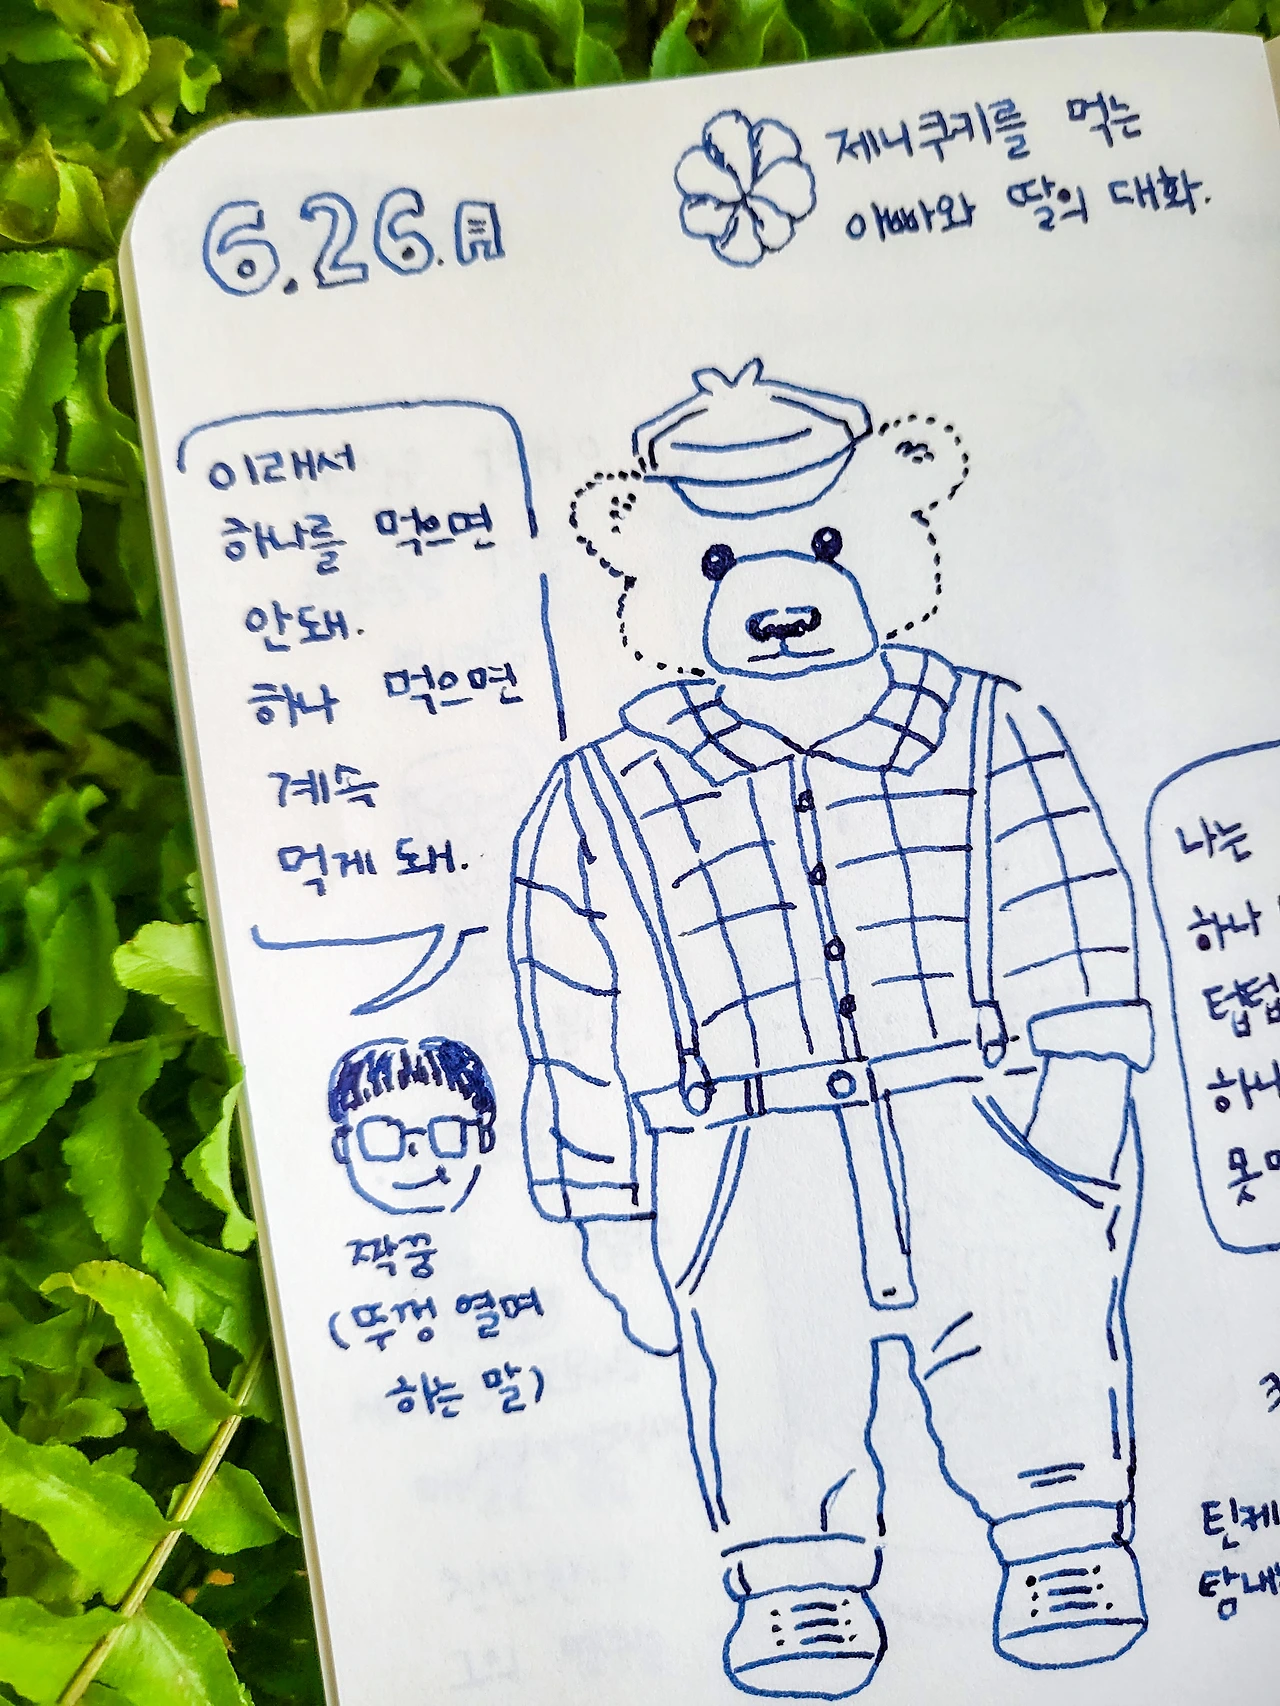 6.26.月
제니쿠키를 먹는
아빠와 딸의 대화.
이래서
하나를 먹으면
안돼.
하나 먹으면
계속
먹게 돼.
짝꿍
(뚜껑 열며
하는 말)
나는
하나
텁텁
하나
못
틴케
탐내